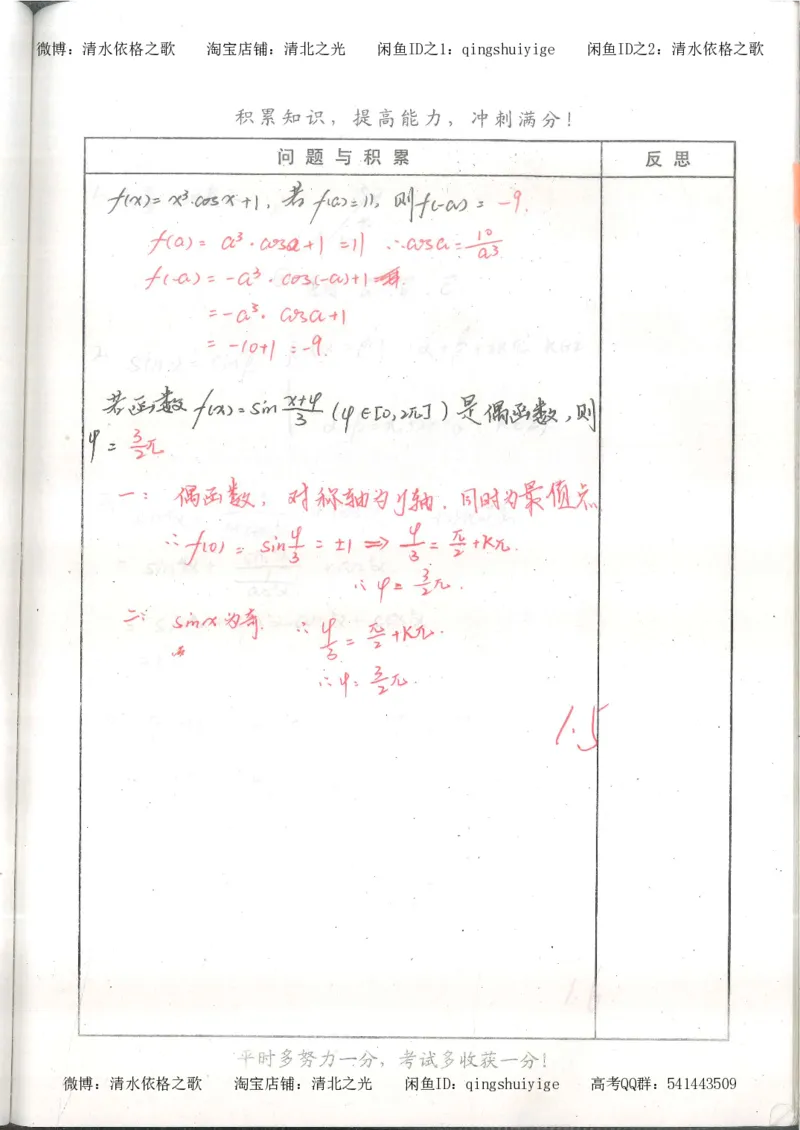 微博：清水依格之歌 淘宝店铺：清北之光 闲鱼ID之1：qingshuiyige 闲鱼ID之2：清水依格之歌
积累知识，提高能力，冲刺满分！
问题与积累 反思
f(x)=x³·cosx+1，若f(a)=11，则f(-a)=-9.
f(a)=a³·cosa+1=11 ∴cosa=10/a³
f(-a)=-a³·cos(-a)+1=
=-a³·cosa+1
=-10+1=-9.
若函数f(x)=sin (x+φ)/3 (φ∈[0,2π])是偶函数，则
φ=3/2π.
一：偶函数，对称轴为y轴，同时为最值点
∴f(0)=sin φ/3=±1⇒φ/3=π/2+kπ.
∴φ=3/2π.
二：sinx为奇. ∴φ/3=π/2+kπ.
∴φ=3/2π.
1.5
平时多努力一分，考试多收获一分！
微博：清水依格之歌 淘宝店铺：清北之光 闲鱼ID：qingshuiyige 高考QQ群：541443509